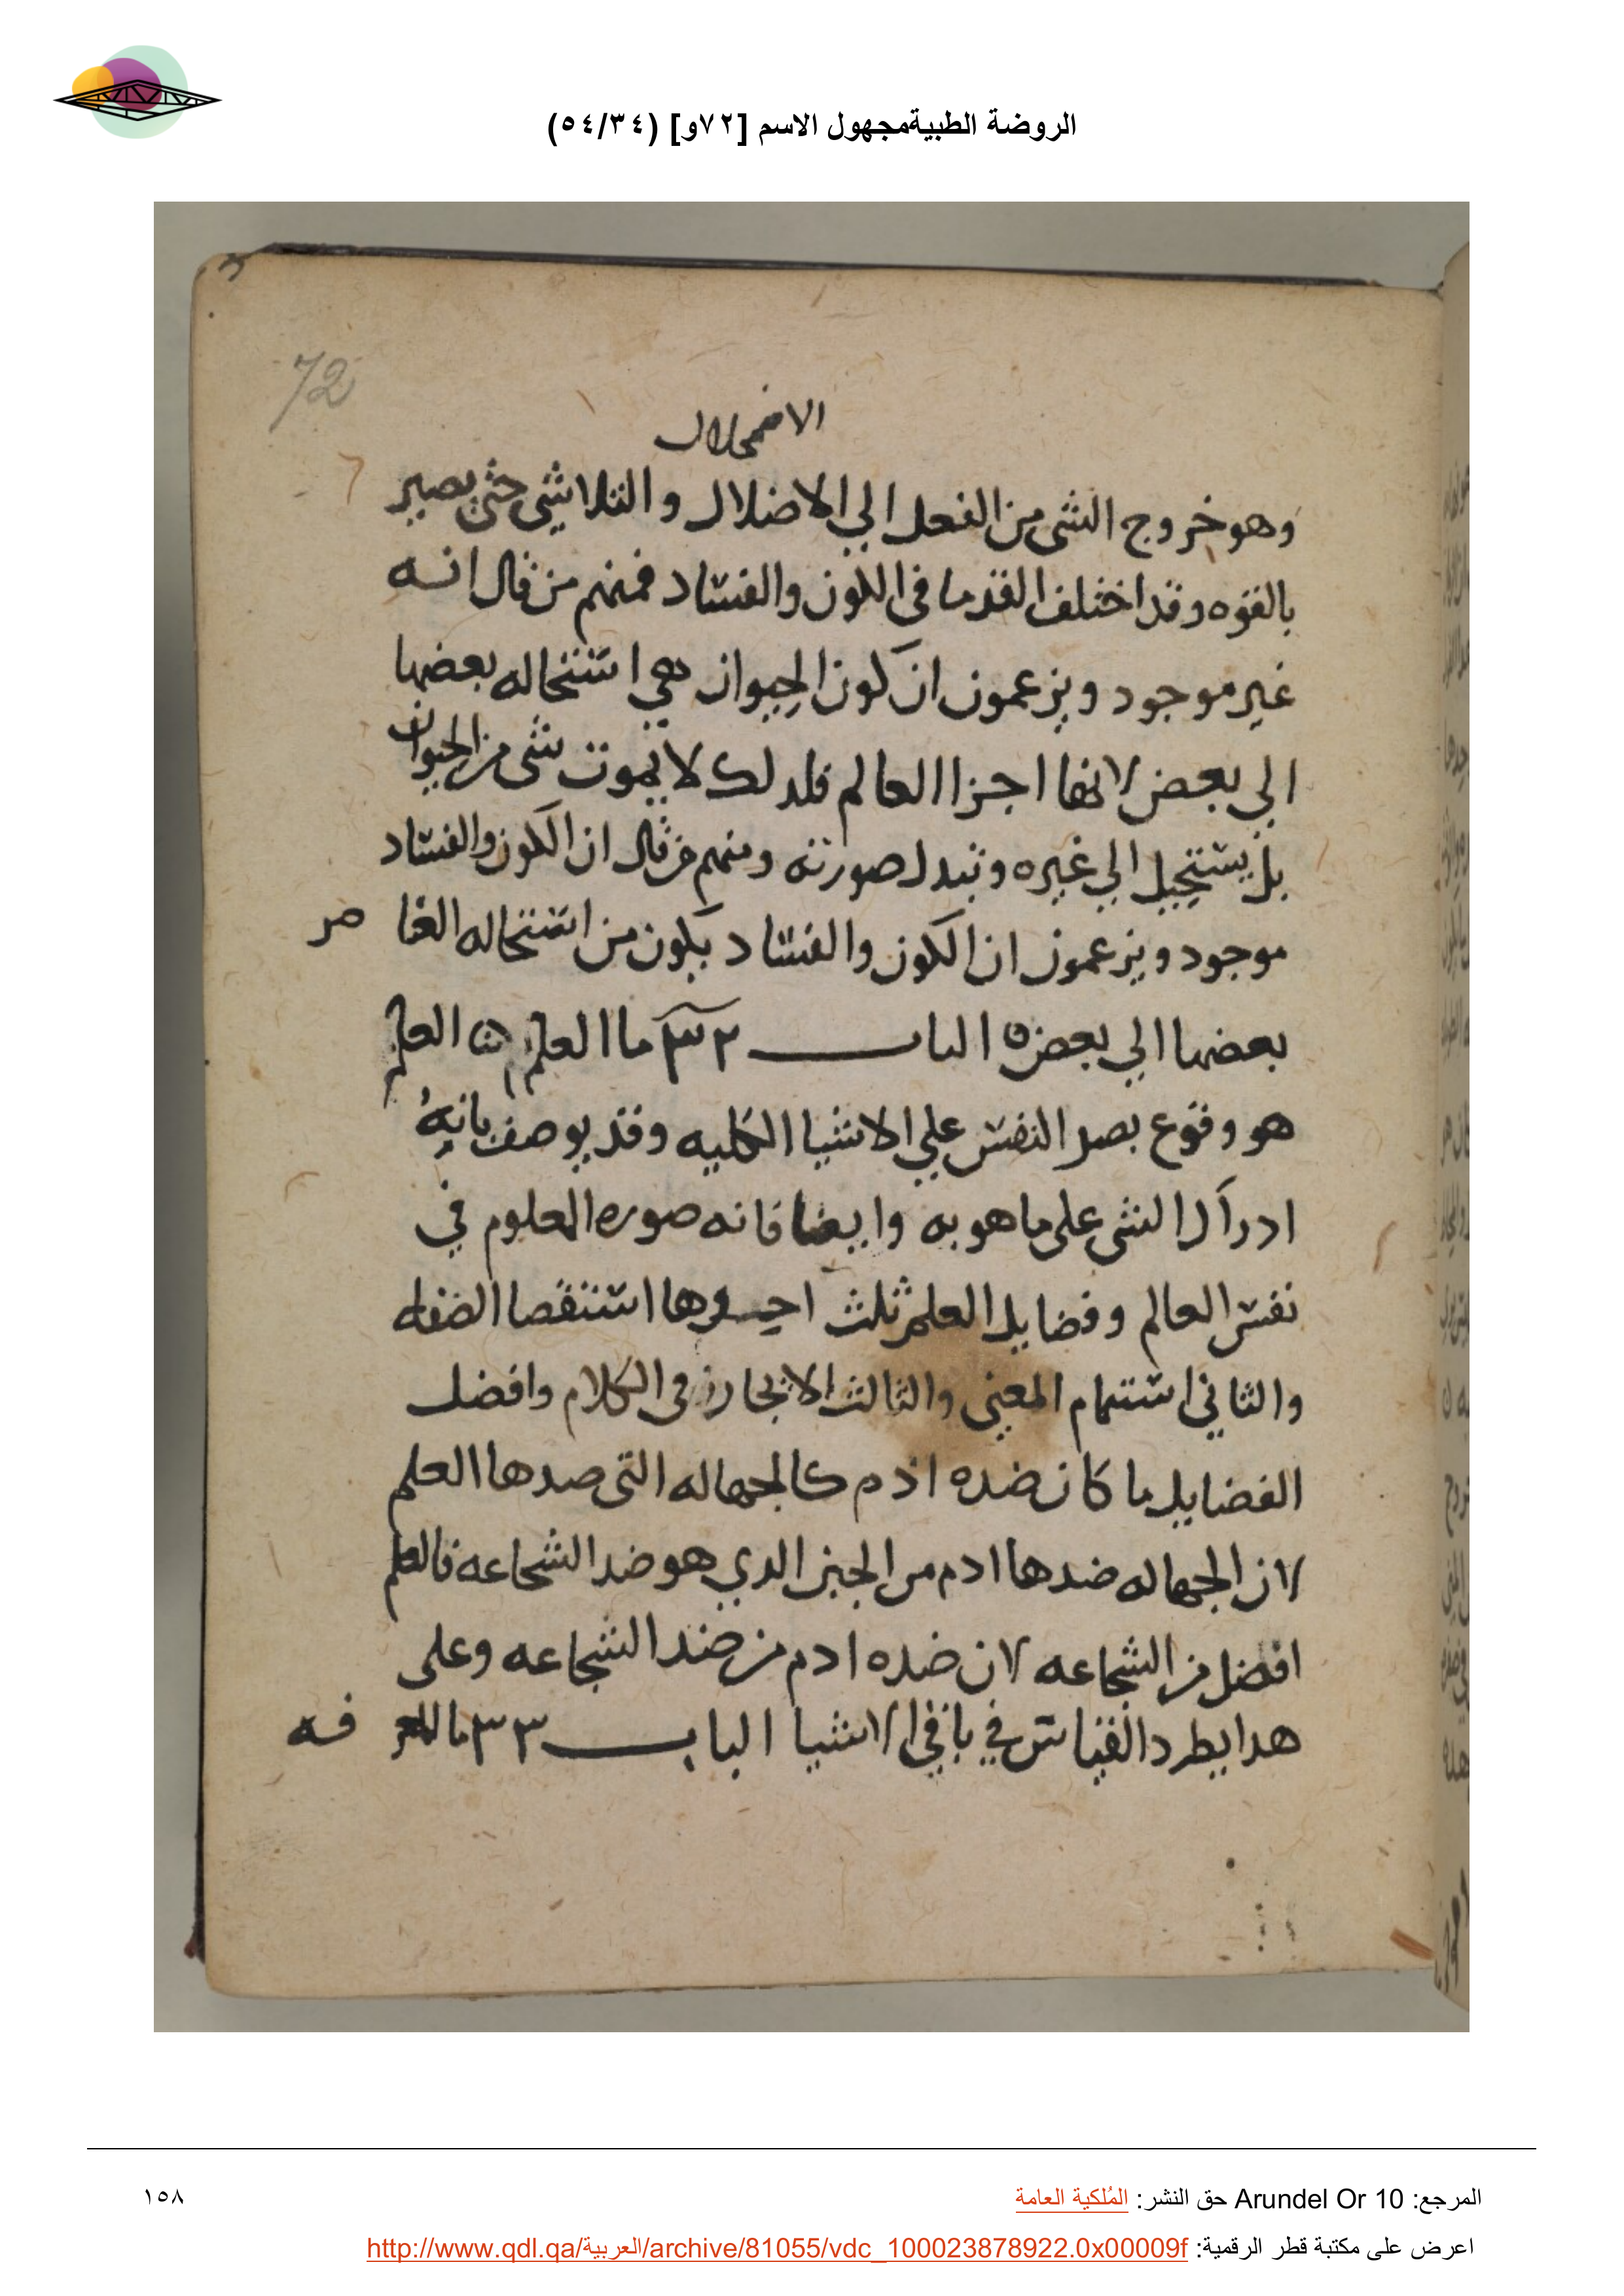 الروضة الطبيةمجهول الاسم [٧٢و] (٥٤/٣٤)
72
الاضمحلال
وهو خروج الشى من الفعل الي الاضلال والتلاشي حتى يصير
بالقوه وقد اختلف القدما في الكون والفساد فمنهم من قال انه
غير موجود ويزعمون ان كون الحيوان هي استحاله بعضها
الي بعض لانها اجزا العالم فلدلك لا يموت شى من الحيوان
بل يستحيل الي غيره وتبدل صورته ومنهم من قال ان الكون والفساد
موجود ويزعمون ان الكون والفساد يكون من استحاله العنا صر
بعضها الي بعض ه الباب ٣٢ ما العلم العلم
هو وقوع بصر النفس علي الاشيا الكليه وقد يوصف بانه
ادراك الشى على ما هو به وايضا فانه صوره المعلوم في
نفس العالم وفضايل العلم ثلث احدها استنقصا الضفه
والثاني استتمام المعني والثالث الايجاز في الكلام وافضل
الفضايل ما كان ضده اذم كالجهاله التى ضدها العلم
لان الجهاله ضدها ادم من الجبن الدي هو ضد الشجاعه فالعلم
افضل من الشجاعه لان ضده ادم من ضد الشجاعه وعلى
هدا يطرد القياس في باقي الاشيا الباب ٣٣ ما المعر فه
المرجع: Arundel Or 10 حق النشر: المُلكية العامة
١٥٨
اعرض على مكتبة قطر الرقمية: http://www.qdl.qa/العربية/archive/81055/vdc_100023878922.0x00009f